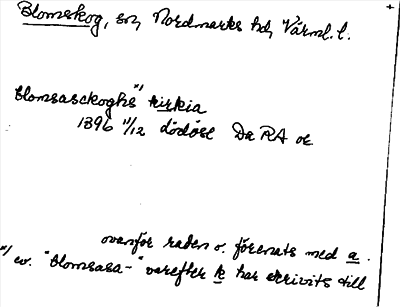 Blomskog, sn, Nordmarks hd, Värml. l.
blomsasckoghs x) kirkia
1396 11/12 dödöse Da RA or
ovanför raden o. försnats med a.
x) ev. "blomsasa-" varefter k har skrivits till